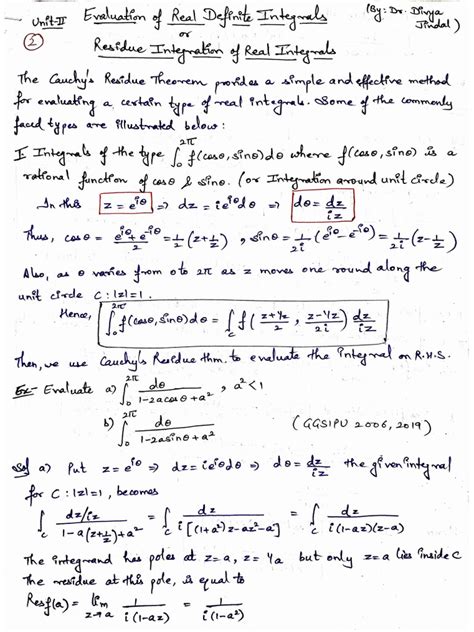 Unit-II Evaluation of Real Definite Integrals (By: Dr. Divya Jindal)
② or
Residue Integration of Real Integrals
The Cauchy's Residue Theorem provides a simple and effective method
for evaluating a certain type of real integrals. Some of the commonly
faced types are illustrated below:
I. Integrals of the type ∫₀^2π f(cosθ, sinθ)dθ where f(cosθ, sinθ) is a
rational function of cosθ & sinθ. (or Integration around unit circle)
In this z = e^iθ ⇒ dz = ie^iθ dθ ⇒ dθ = dz/iz
Thus, cosθ = (e^iθ + e^-iθ)/2 = 1/2 (z + 1/z), sinθ = 1/2i (e^iθ - e^-iθ) = 1/2i (z - 1/z)
Also, as θ varies from 0 to 2π as z moves one round along the
unit circle C: |z|=1.
Hence, ∫₀^2π f(cosθ, sinθ)dθ = ∫_C f((z+1/z)/2, (z-1/z)/2i) dz/iz
Then, we use Cauchy's Residue thm. to evaluate the integral on R.H.S.
Ex:- Evaluate a) ∫₀^2π dθ/(1-2acosθ+a²), a²<1
b) ∫₀^2π dθ/(1-2asinθ+a²) (GGSIPU 2006, 2019)
Sol a) Put z = e^iθ ⇒ dz = ie^iθ dθ ⇒ dθ = dz/iz the given integral
for C: |z|=1, becomes
∫_C (dz/iz)/(1-a(z+1/z)+a²) = ∫_C dz/(i[(1+a²)z-az²-a]) = ∫_C dz/(i(1-az)(z-a))
The integrand has poles at z=a, z=1/a but only z=a lies inside C
The residue at this pole, is equal to
Resf(a) = lim_z→a 1/(i(1-az)) = 1/(i(1-a²))